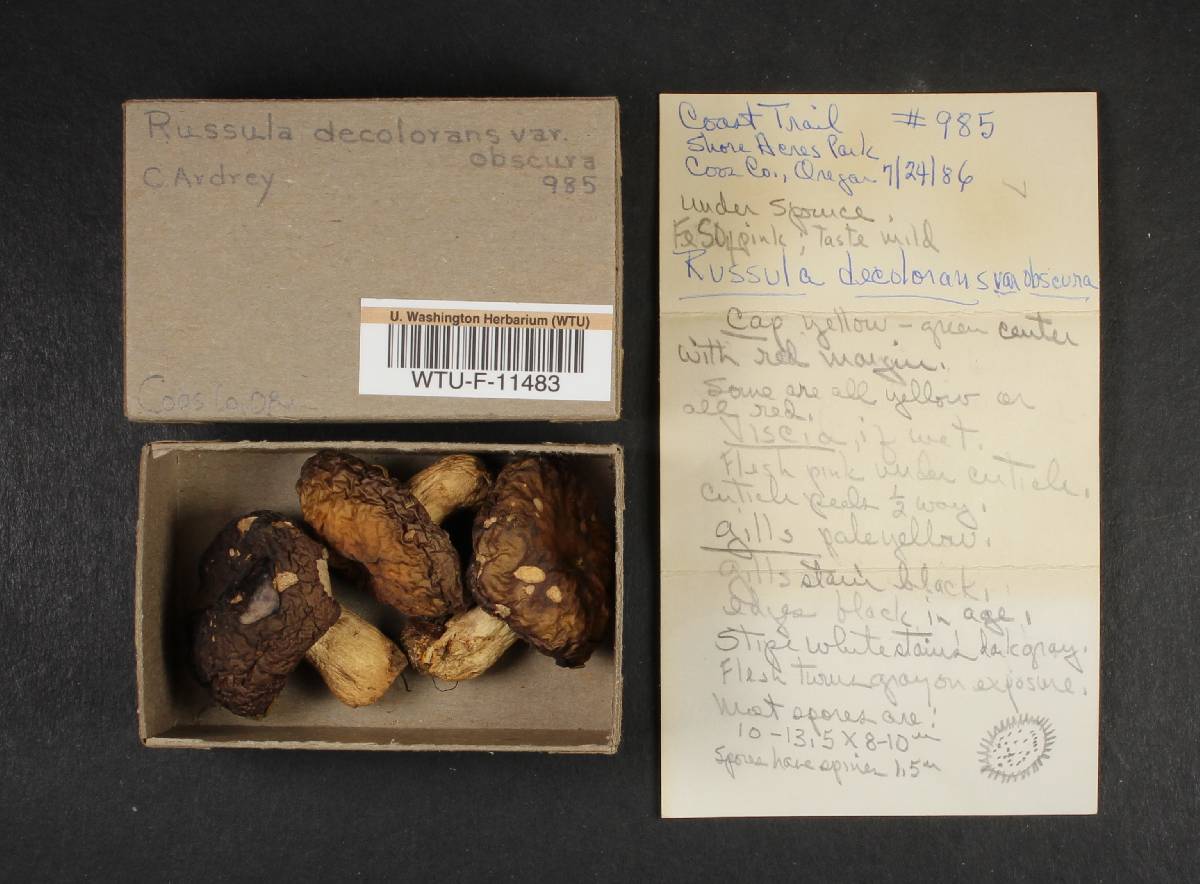 Russula decolorans var.
obscura
C. Ardrey 985
U. Washington Herbarium (WTU)
WTU-F-11483
Coos Co. Ore
Coast Trail #985
Shore Acres Park
Coos Co., Oregon 7/24/86
under spruce.
FeSO4 pink; Taste mild
Russula decolorans var obscura
Cap yellow-green center
with red margin.
Some are all yellow or
all red.
Viscid, if wet.
Flesh pink under cuticle.
Cuticle peels ½ way.
gills pale yellow.
Gills stain black,
edges black in age.
Stipe white stains dark gray.
Flesh turns gray on exposure.
Most spores are:
10-13.5 x 8-10
Spores have spines 1.5